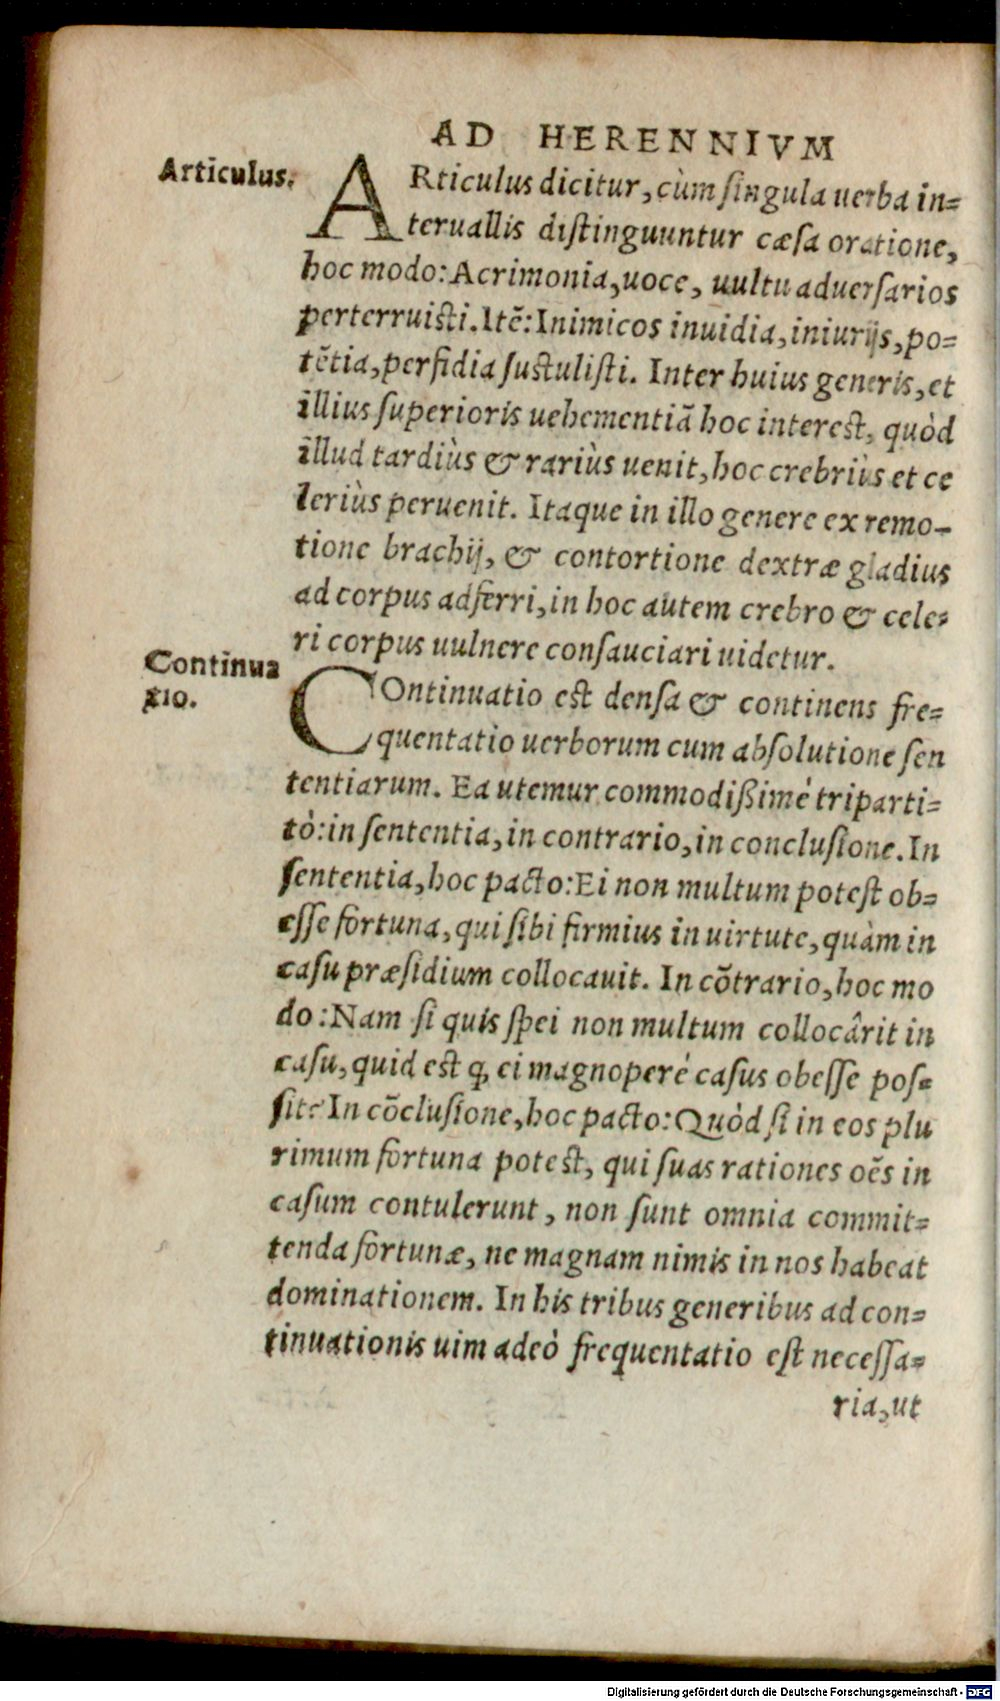 AD HERENNIVM
Articulus.
ARticulus dicitur, cùm singula uerba in=
teruallis distinguuntur cæsa oratione,
hoc modo: Acrimonia, uoce, uultu aduersarios
perterruisti. Itē: Inimicos inuidia, iniurijs, po=
tētia, perfidia sustulisti. Inter huius generis, et
illius superioris uehementiā hoc interest, quòd
illud tardiùs & rariùs uenit, hoc crebriùs et ce
leriùs peruenit. Itaque in illo genere ex remo-
tione brachij, & contortione dextræ gladius
ad corpus adferri, in hoc autem crebro & cele=
ri corpus uulnere consauciari uidetur.
Continua
tio.
COntinuatio est densa & continens fre=
quentatio uerborum cum absolutione sen
tentiarum. Ea utemur commodißimè triparti=
tò: in sententia, in contrario, in conclusione. In
sententia, hoc pacto: Ei non multum potest ob=
esse fortuna, qui sibi firmius in uirtute, quàm in
casu præsidium collocauit. In cōtrario, hoc mo
do: Nam si quis spei non multum collocârit in
casu, quid est q, ei magnoperè casus obesse pos=
sit? In cōclusione, hoc pacto: Quòd si in eos plu
rimum fortuna potest, qui suas rationes oēs in
casum contulerunt, non sunt omnia commit=
tenda fortunæ, ne magnam nimis in nos habeat
dominationem. In his tribus generibus ad con=
tinuationis uim adeò frequentatio est necessa=
ria, ut
Digitalisierung gefördert durch die Deutsche Forschungsgemeinschaft - DFG